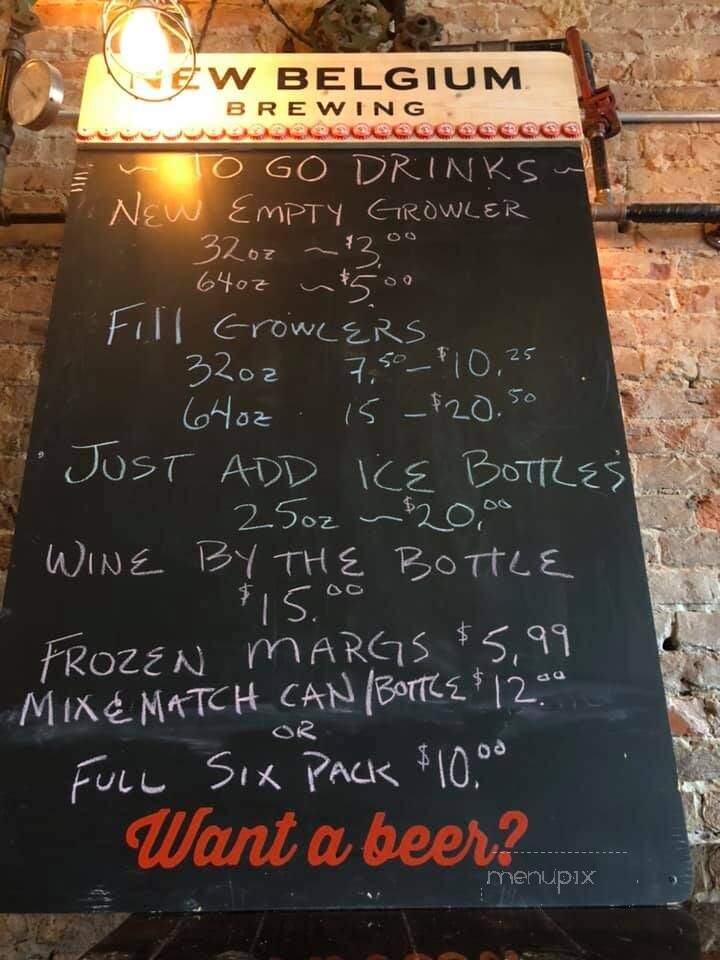 NEW BELGIUM
BREWING
~ TO GO DRINKS ~
NEW EMPTY GROWLER
32oz ~ $3.00
64oz ~ $5.00
Fill GROWLERS
32oz 7.50 - $10.25
64oz 15 - $20.50
JUST ADD ICE BOTTLES
25oz ~ $20.00
WINE BY THE BOTTLE
$15.00
FROZEN MARGS $5.99
MIX & MATCH CAN/BOTTLE $12.00
OR
FULL SIX PACK $10.00
Want a beer?
menupix